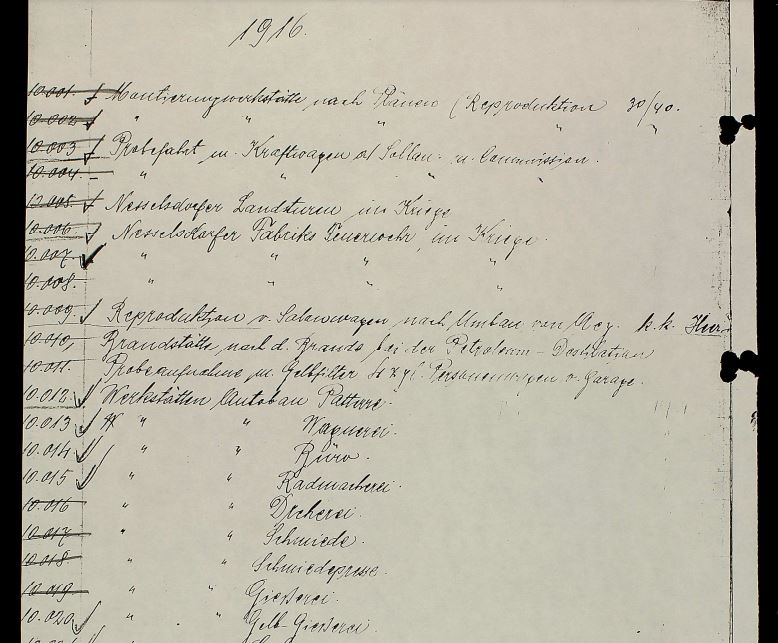 1916.
10.001. Montierungswerkstätte nach Plänen (Reproduktion 30/40.
10.002 " " " " "
10.003 Probefahrt m. Kraftwagen Sollau. u. Commission.
10.004 - " " " "
10.005 Nesselsdorfer Landsturm im Kriege
10.006 Nesselsdorfer Fabriks Feuerwehr im Kriege.
10.007. " " " "
10.008. " " " "
10.009. Reproduktion v. Salonwagen nach Umbau von k.k.
10.010, Brandstätte nach d. Brande bei der Petroleum-Destillation
10.011. Probeaufnahme m. Gelbfilter 4 zyl. Personenwagen v. Garage.
10.012. Werkstätten Autobau
10.013 W " " Wagnerei.
10.014 " " Büro.
10.015 " " Radmacherei.
10.016 " " Dreherei.
10.017 " " Schmiede.
10.018. " " Schmiedepresse.
10.019 " " Giesserei.
10.020 " " Gelb-Giesserei